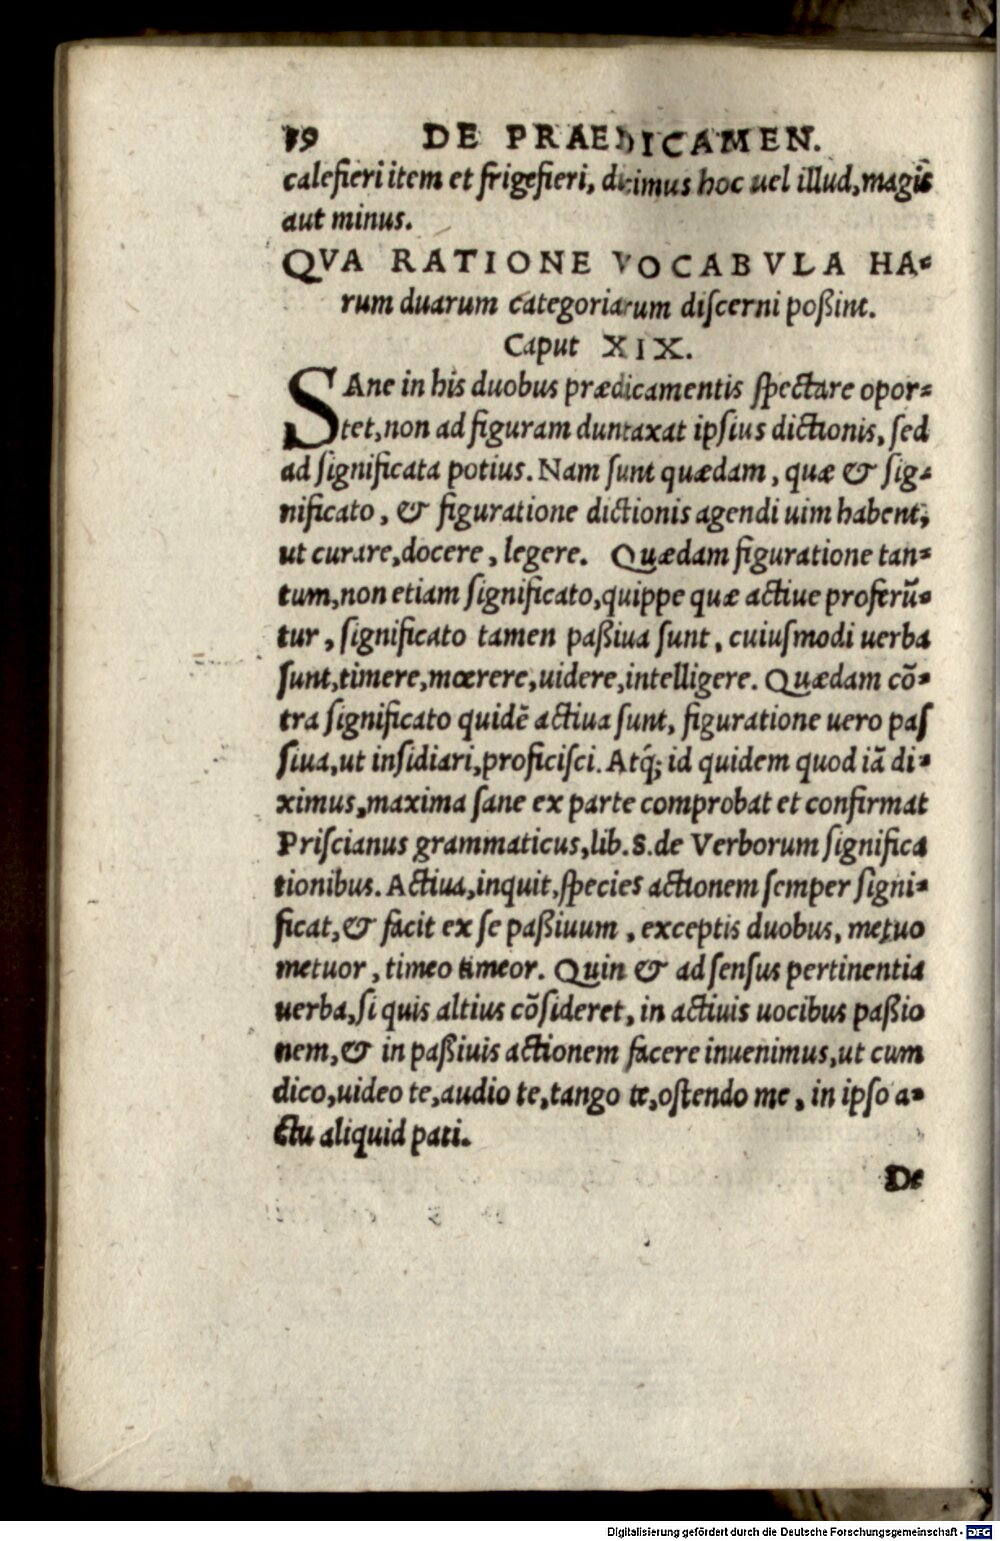 19 DE PRAEDICAMEN.
calefieri item et frigefieri, dicimus hoc uel illud, magis
aut minus.
QVA RATIONE VOCABVLA HA-
rum duarum categoriarum discerni poßint.
Caput XIX.
SAne in his duobus prædicamentis spectare opor-
tet, non ad figuram duntaxat ipsius dictionis, sed
ad significata potius. Nam sunt quædam, quæ & sig-
nificato, & figuratione dictionis agendi uim habent,
ut curare, docere, legere. Quædam figuratione tan-
tum, non etiam significato, quippe quæ actiue proferū-
tur, significato tamen paßiua sunt, cuiusmodi uerba
sunt, timere, mœrere, uidere, intelligere. Quædam cō-
tra significato quidē actiua sunt, figuratione uero pas
siua, ut insidiari, proficisci. Atq́; id quidem quod iā di-
ximus, maxima sane ex parte comprobat et confirmat
Priscianus grammaticus, lib. 8. de Verborum significa
tionibus. Actiua, inquit, species actionem semper signi-
ficat, & facit ex se paßiuum, exceptis duobus, metuo
metuor, timeo timeor. Quin & ad sensus pertinentia
uerba, si quis altius cōsideret, in actiuis uocibus paßio
nem, & in paßiuis actionem facere inuenimus, ut cum
dico, uideo te, audio te, tango te, ostendo me, in ipso a-
ctu aliquid pati.
De
Digitalisierung gefördert durch die Deutsche Forschungsgemeinschaft - DFG